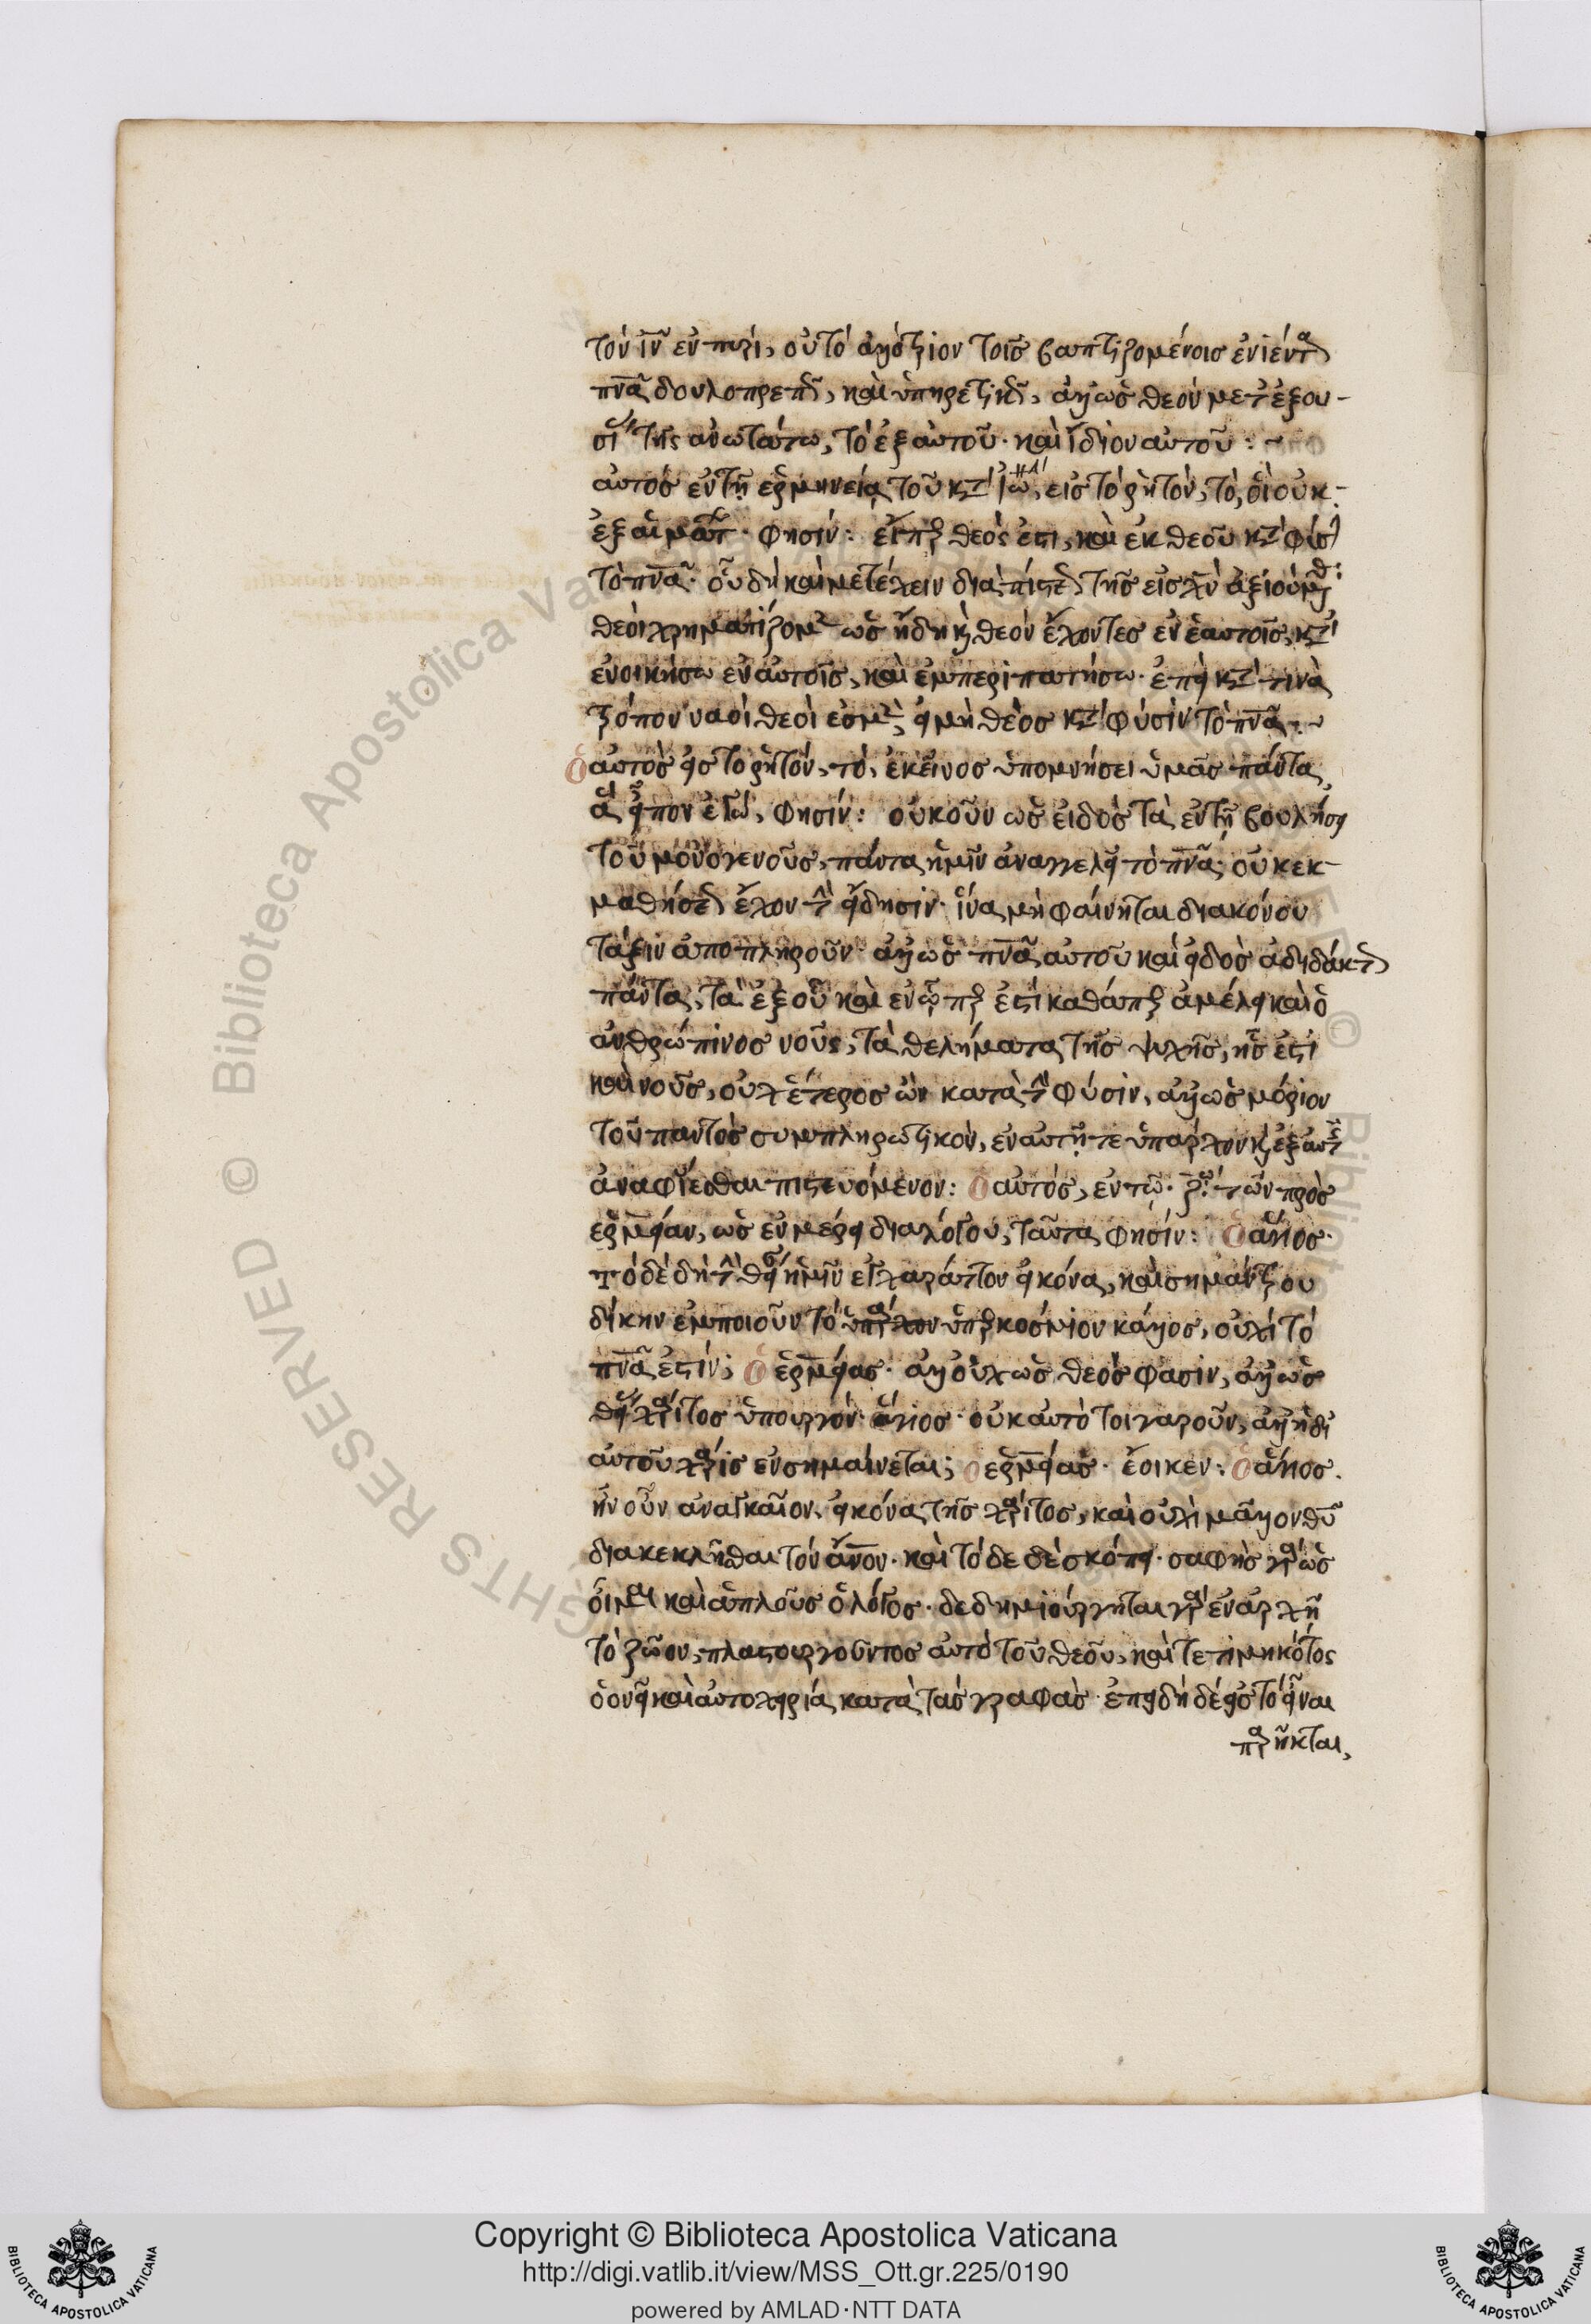 τὸν ἰν ἐν πυρὶ, οὐ τὸ ἀλλότριον τοῖς βαπτιζομένοις ἐνιέντα
πνα δουλοπρεπῶς, καὶ ὑπηρετικῶς, ἀλλ' ὡς θεὸν μετ' ἐξου-
σίας τῆς ἀνωτάτω, τὸ ἐξ αὐτοῦ· καὶ ἴδιον αὐτοῦ: ~
αὐτὸς ἐν τῇ ἑρμηνείᾳ τοῦ κατὰ ἰω, εἰς τὸ ῥητὸν, τὸ, οἳ οὐκ
ἐξ αἱμάτων· φησίν: εἴπερ θεός ἐστι, καὶ ἐκ θεοῦ κατὰ φύσιν
τὸ πνα· οὗ δὴ καὶ μετέχειν διὰ πίστεως τῆς εἰς χν ἀξιούμενοι
θεοὶ χρηματίζομεν ὡς ἤδη καὶ θεὸν ἔχοντες ἐν ἑαυτοῖς, κατὰ
ἐνοικήσω ἐν αὐτοῖς, καὶ ἐμπεριπατήσω· ἐπεὶ κατὰ τίνα
τρόπον ναοὶ θεοὶ ἐσμὲν, εἰ μὴ θεὸς κατὰ φύσιν τὸ πνα: ~
ὁ αὐτὸς εἰς τὸ ῥητὸν, τὸ, ἐκεῖνος ὑπομνήσει ὑμᾶς πάντα,
ἃ εἶπον ἐγώ, φησίν: οὐκοῦν ὡς εἰδὸς τὰ ἐν τῇ βουλήσει
τοῦ μονογενοῦς, πάντα ἡμῖν ἀναγγελεῖ τὸ πνα· οὐκ ἐκ
μαθήσεως ἔχον τὴν εἴδησιν· ἵνα μὴ φαίνηται διακόνου
τάξιν ἀποπληροῦν· ἀλλ' ὡς πνα αὐτοῦ καὶ εἰδὸς ἀδιδάκτως
πάντα, τὰ ἐξ οὗ καὶ ἐν ᾧπερ ἐστί καθάπερ ἀμέλει καὶ ὁ
ἀνθρώπινος νοῦς, τὰ θελήματα τῆς ψυχῆς, ἧς ἐστι
καὶ νοῦς, οὐχ ἕτερος ὢν κατὰ τὴν φύσιν, ἀλλ' ὡς μόριον
τοῦ παντὸς συμπληρωτικὸν, ἐν αὐτῇ τε ὑπάρχον καὶ ἐξ αὐτῆς
ἀναφύεσθαι πιστευόμενον: ὁ αὐτὸς, ἐν τῷ· ζω τῶν πρὸς
ἑρμείαν, ὡς ἐν μέρει διαλόγου, ταῦτα φησίν: ὁ ἅγιος·
τὸ δὲ δὴ τὴν θείαν ἡμῖν ἐγχαράττον εἰκόνα, καὶ σημάντρου
δίκην ἐμποιοῦν τὸ ὑπάρχον ὑπερκόσμιον κάλλος, οὐχὶ τὸ
πνα ἐστίν; ὁ ἑρμείας· ἀλλ' οὐχ ὡς θεὸς φασιν, ἀλλ' ὡς
θείας χάριτος ὑπουργόν· ἅγιος· οὐκ αὐτὸ τοιγαροῦν, ἀλλ' ἡ δι'
αὐτοῦ χάρις ἐνσημαίνεται; ὁ ἑρμείας· ἔοικεν: ὁ ἅγιος.
ἦν οὖν ἀναγκαῖον, εἰκόνα τῆς χάριτος, καὶ οὐχὶ μᾶλλον θυ
διακεκλῆσθαι τὸν ανον· καὶ τόδε δὲ σκόπει· σαφὴς γὰρ ὡς
οἶμαι καὶ ἁπλοῦς ὁ λόγος· δεδημιούργηται γὰρ ἐν ἀρχῇ
τὸ ζῶον, πλαστουργοῦντος αὐτὸ τοῦ θεοῦ, καὶ τετιμηκότος
οἱονεὶ καὶ αὐτοχειρίᾳ κατὰ τὰς γραφάς· ἐπειδὴ δὲ εἰς τὸ εἶναι
παρῆκται,
Copyright © Biblioteca Apostolica Vaticana
http://digi.vatlib.it/view/MSS_Ott.gr.225/0190
powered by AMLAD·NTT DATA